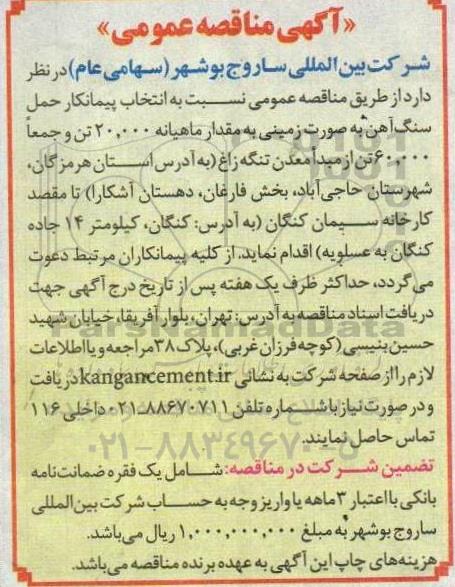 «آگهی مناقصه عمومی»
شرکت بین المللی ساروج بوشهر (سهامی عام) در نظر
دارد از طریق مناقصه عمومی نسبت به انتخاب پیمانکار حمل
سنگ آهن به صورت زمینی به مقدار ماهیانه ۲۰,۰۰۰ تن و جمعاً
۶۰,۰۰۰ تن از مبدأ معدن تنگه زاغ (به آدرس استان هرمزگان،
شهرستان حاجی آباد، بخش فارغان، دهستان آشکارا) تا مقصد
کارخانه سیمان کنگان (به آدرس: کنگان، کیلومتر ۱۴ جاده
کنگان به عسلویه) اقدام نماید. از کلیه پیمانکاران مرتبط دعوت
می گردد، حداکثر ظرف یک هفته پس از تاریخ درج آگهی جهت
دریافت اسناد مناقصه به آدرس: تهران، بلوار آفریقا، خیابان شهید
حسین بنیسی (کوچه فرزان غربی)، پلاک ۳۸ مراجعه و یا اطلاعات
لازم را از صفحه شرکت به نشانی kangancement.ir دریافت
و در صورت نیاز با شماره تلفن ۸۸۶۷۰۷۱۱-۰۲۱ داخلی ۱۱۶
تماس حاصل نمایند.
تضمین شرکت در مناقصه: شامل یک فقره ضمانت نامه
بانکی با اعتبار ۳ ماهه یا واریز وجه به حساب شرکت بین المللی
ساروج بوشهر به مبلغ ۱,۰۰۰,۰۰۰,۰۰۰ ریال می باشد.
هزینه های چاپ این آگهی به عهده برنده مناقصه می باشد.
ParsNamadData
۰۲۱-۸۸۳۴۹۶۷۰-۵